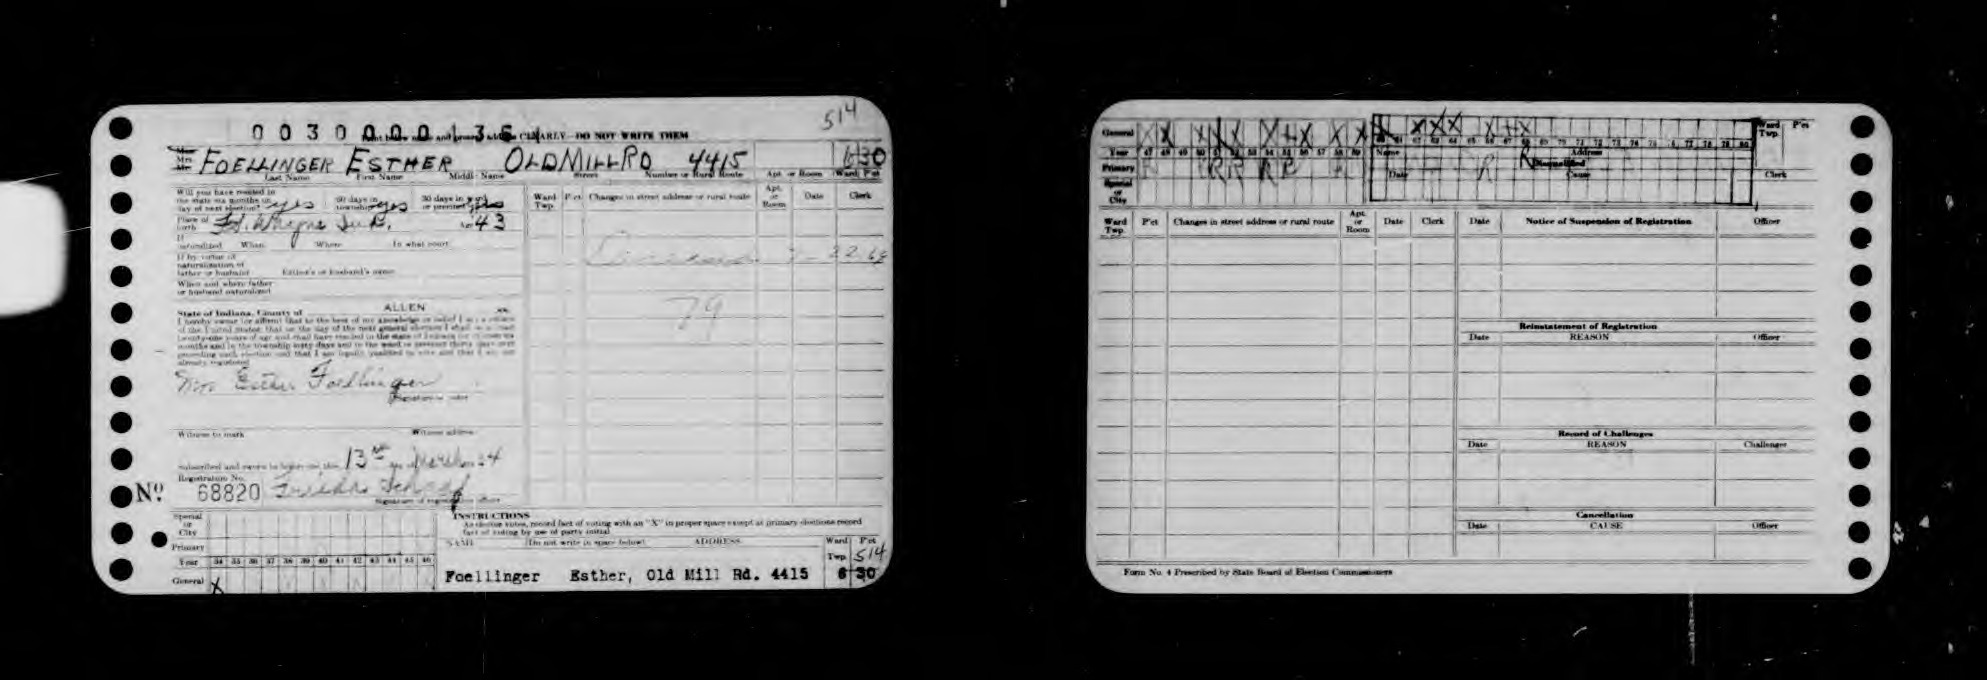 514
0030000 1361
Print below name and present address CLEARLY—DO NOT WRITE THEM
Miss
Mrs.
Mr.
FOELLINGER ESTHER OLD MILL RD 4415 630
Last Name First Name Middle Name Street Number or Rural Route Apt. or Room Ward P'ct
Will you have resided in
the state six months on
day of next election? yes 60 days in
township yes 30 days in ward
or precinct yes
Place of
birth Ft. Wayne Ind. Age 43
If
naturalized When Where In what court
If by virtue of
naturalization of
father or husband Father's or husband's name
When and where father
or husband naturalized
State of Indiana, County of ALLEN ss.
I hereby swear (or affirm) that to the best of my knowledge or belief I am a citizen
of the United States; that on the day of the next general election I shall be at least
twenty-one years of age and shall have resided in the state of Indiana for six
months and in the township sixty days and in the ward or precinct thirty days
preceding such election and that I am legally qualified to vote and that I am not
already registered
Mrs Esther Foellinger
Signature of voter
Witness to mark Witness address
Subscribed and sworn to before me, this 13th day of March 34
Registration No.
No 68820 Frieda
Signature of registration officer
Ward
Twp. P'ct Changes in street address or rural route Apt.
or
Room Date Clerk
22 69
79
Special
or
City
Primary
Year 34 35 36 37 38 39 40 41 42 43 44 45 46
General X
INSTRUCTIONS
As elector votes, record fact of voting with an "X" in proper space except at primary elections record
fact of voting by use of party initial
NAME (Do not write in space below) ADDRESS Ward
Twp. P'ct
514
Foellinger Esther, Old Mill Rd. 4415 6 30
General X X X X X X X X X X X X X X X X X X
Year 47 48 49 50 51 52 53 54 55 56 57 58 59 60 61 62 63 64 65 66 67 68 69 70 71 72 73 74 75 76 77 78 79 80
Primary R R R R R R
Special
or
City
Name Address
Disqualified
Date Cause
Ward
Twp. P'ct
Clerk
Ward
Twp. P'ct Changes in street address or rural route Apt.
or
Room Date Clerk Date Notice of Suspension of Registration Officer
Reinstatement of Registration
Date REASON Officer
Record of Challenges
Date REASON Challenger
Cancellation
Date CAUSE Officer
Form No. 4 Prescribed by State Board of Election Commissioners